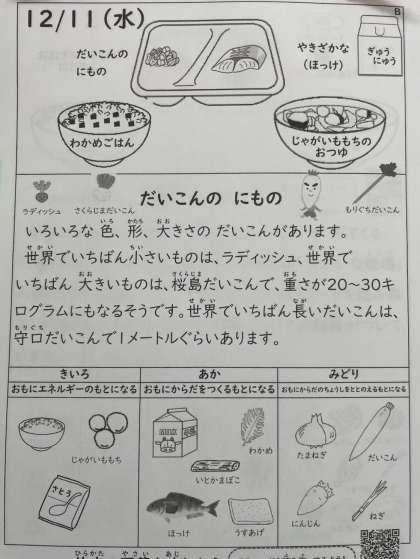 B
12/11(水)
だいこんの
にもの
やきざかな
(ほっけ)
ぎゅう
にゅう
わかめごはん
じゃがいももちの
おつゆ
だいこんの にもの
ラディッシュ
さくらじまだいこん
もりぐちだいこん
いろ かたち おお
いろいろな 色、形、大きさの だいこんがあります。
せかい ちい せかい
世界でいちばん小さいものは、ラディッシュ、世界で
おお さくらじま おも
いちばん 大きいものは、桜島だいこんで、重さが20～30キ
せかい なが
ログラムにもなるそうです。世界でいちばん長いだいこんは、
もりぐち
守口だいこんで1メートルぐらいあります。
きいろ
あか
みどり
おもにエネルギーのもとになる
おもにからだをつくるもとになる
おもにからだのちょうしをととのえるもとになる
じゃがいももち
わかめ
いとかまぼこ
たまねぎ
だいこん
さとう
ほっけ
うすあげ
にんじん
ねぎ
ひらかた やさい あじ